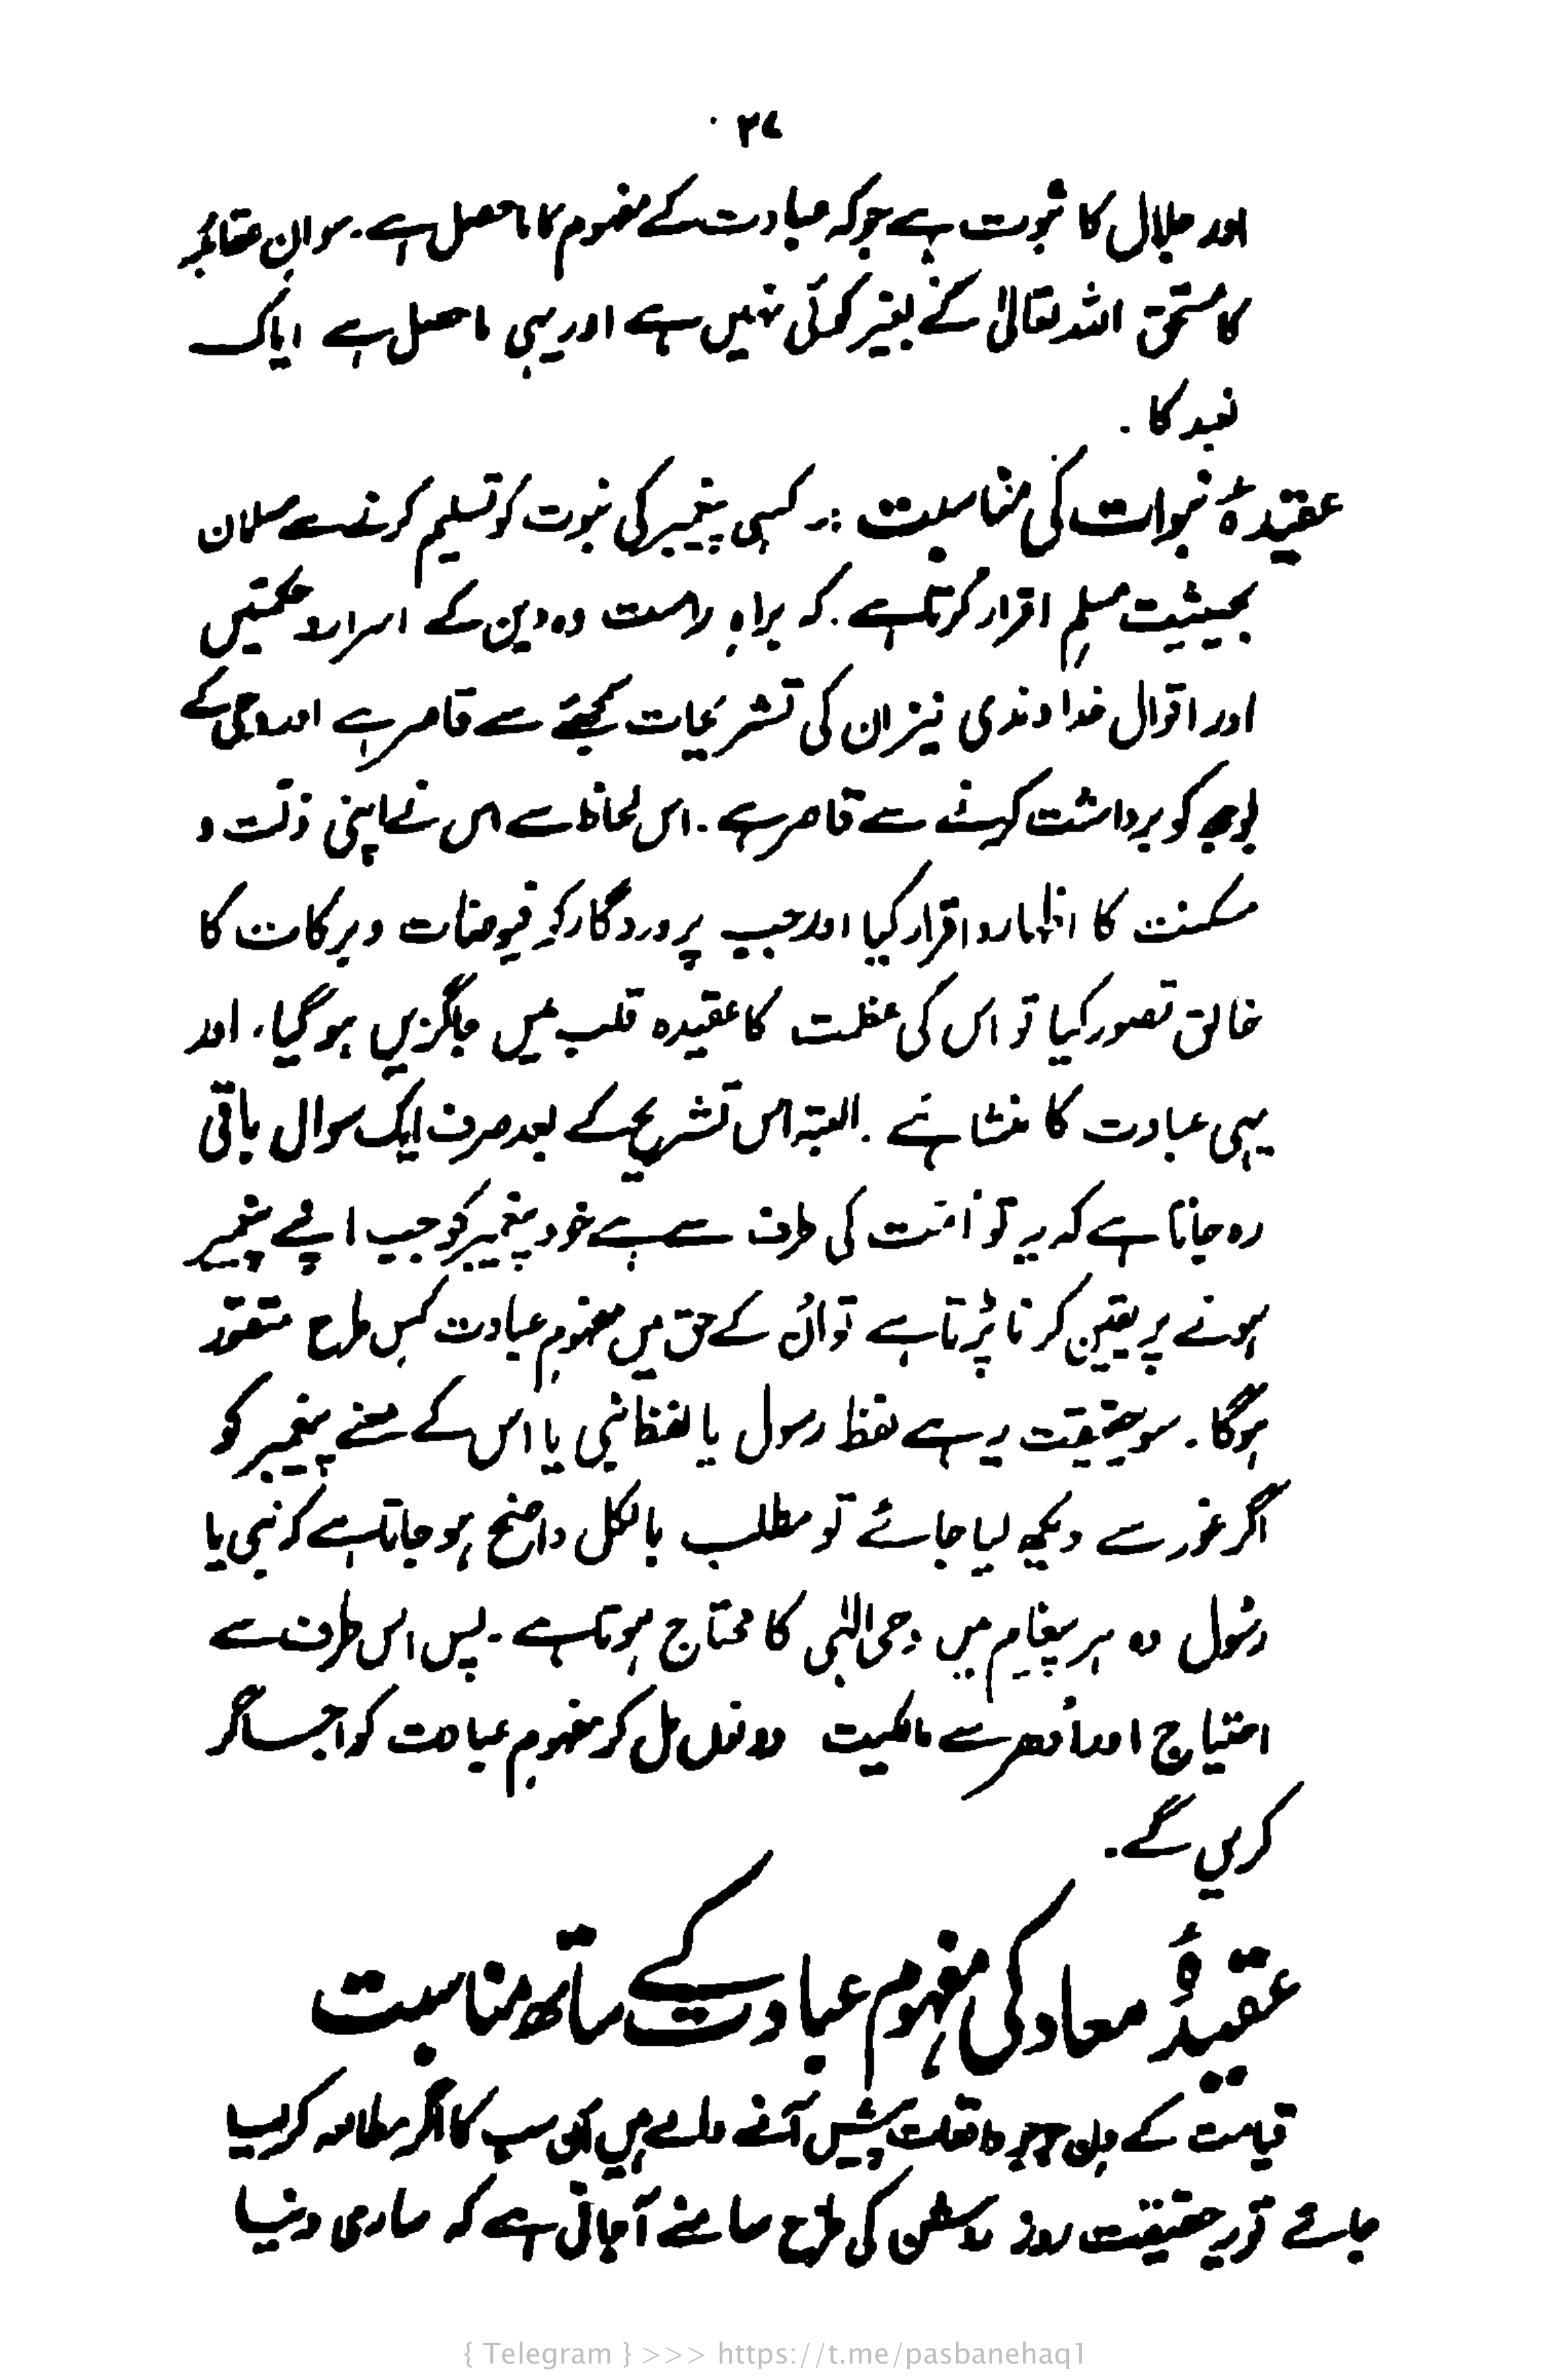 ۳۷
اور جلال کا ثبوت ہے جو کہ عبادت کے مفہوم کا ماحصل ہے۔ سو ان عقائد
کا مستحق اللہ تعالیٰ کے بغیر کوئی نہیں ہے اور یہی ماحصل ہے ایاک
نعبد کا۔
عقیدۂ نبوات کی مناسبت :۔ کسی پیغمبر کی نبوت کو تسلیم کرنے سے مسلمان
بحیثیت مسلم اقرار کرتا ہے۔ کہ براہِ راست وہ دین کے اسرار و حکمتیں
اور اقوال خداوندی نیز ان کی تشریحات سمجھنے سے قاصر ہے اور وحی کے
بوجھ کو برداشت کرنے سے قاصر ہے۔ اس لحاظ سے اس نے اپنی ذلت و
مسکنت کا اظہار و اقرار کیا اور جب پروردگار کو فیوضات و برکات کا
خالق تصور کیا تو اس کی عظمت کا عقیدہ قلب میں جاگزیں ہو گیا، اور
یہی عبادت کا منشا ہے۔ البتہ اس تشریح کے بعد صرف ایک سوال باقی
رہ جاتا ہے کہ یہ تو اُمت کی طرف سے ہے خود پیغمبر کو جب اپنے پیغمبر
ہونے پر یقین کرنا پڑتا ہے تو اُن کے حق میں مفہومِ عبادت کس طرح متصور
ہوگا۔ سو حقیقت یہ ہے لفظ رسول یا لفظ نبی یا اس کے معنے پیغمبر کو
اگر غور سے دیکھ لیا جائے تو مطلب بالکل واضح ہو جاتا ہے کہ نبی یا
رسول وہ ہر پیغام میں وحی الٰہی کا محتاج ہوتا ہے۔ پس اس طرف سے
احتیاج اور اُدھر سے مالکیت دونوں مل کر مفہومِ عبادت کو اجساگر
کریں گے۔
عقیدۂ معاد کی مفہوم عبادت کے ساتھ مناسبت
قیامت کے دن جو واقعات پیش آنے والے ہیں ان سب کا اگر مطالعہ کر لیا
جائے تو یہ حقیقت روز روشن کی طرح سامنے آ جاتی ہے کہ ساری دنیا
{ Telegram } >>> https://t.me/pasbanehaq1